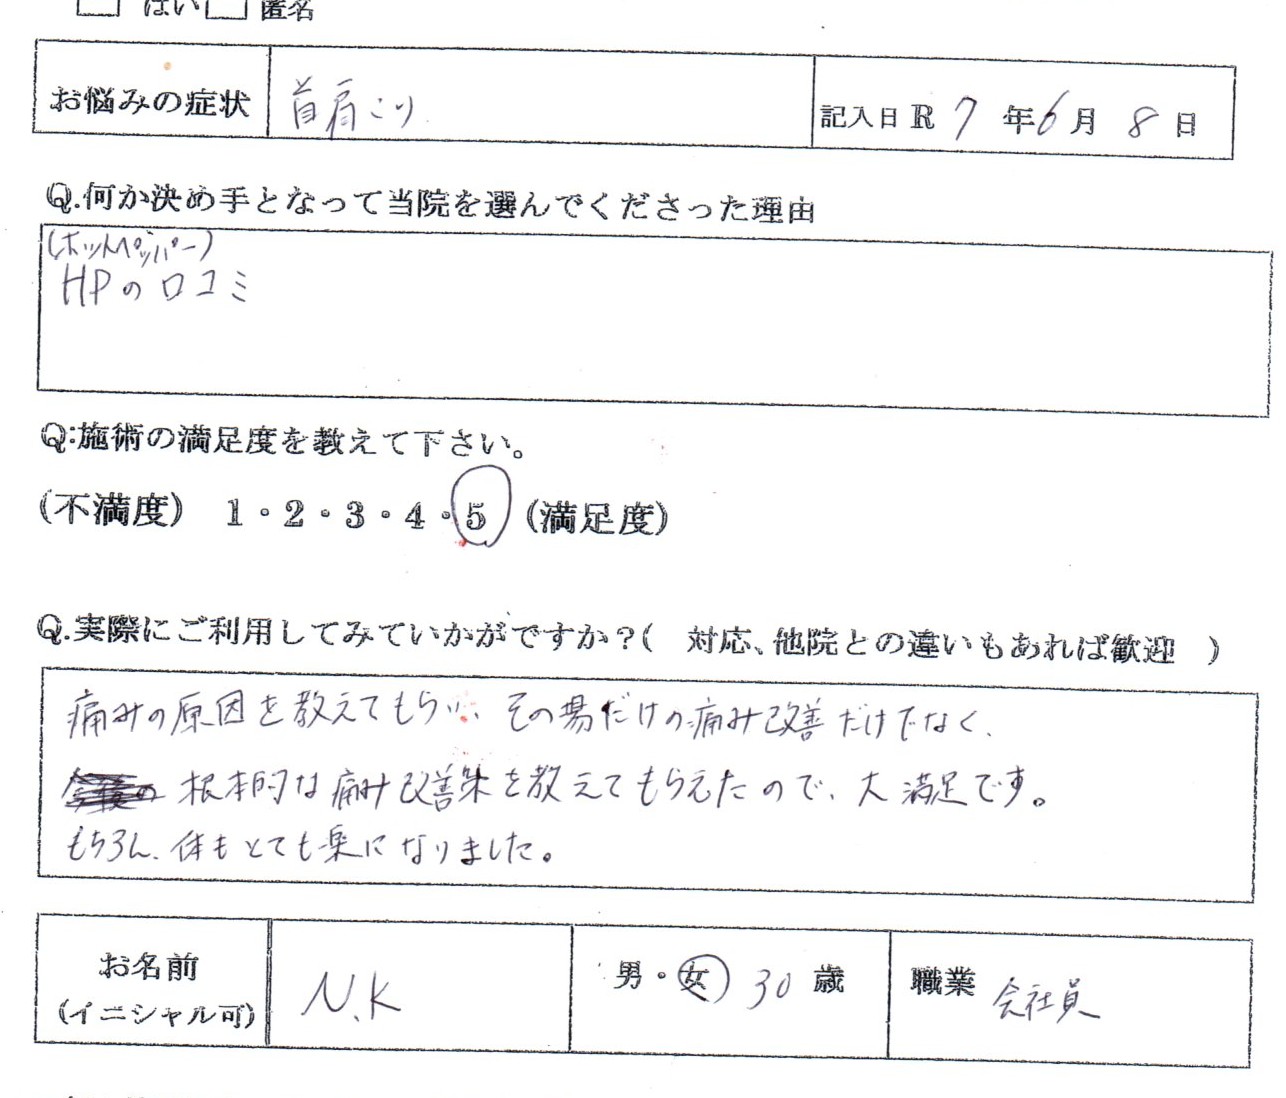 はい 匿名
お悩みの症状 首肩こり 記入日 R 7 年 6 月 8 日
Q.何か決め手となって当院を選んでくださった理由
(ホットペッパー)
HPの口コミ
Q:施術の満足度を教えて下さい。
(不満度) 1・2・3・4・5 (満足度)
Q.実際にご利用してみていかがですか?( 対応、他院との違いもあれば歓迎 )
痛みの原因を教えてもらい、その場だけの痛み改善だけでなく、
根本的な痛み改善策を教えてもらえたので、大満足です。
もちろん、体もとても楽になりました。
お名前 N.K 男・女 30 歳 職業 会社員
(イニシャル可)